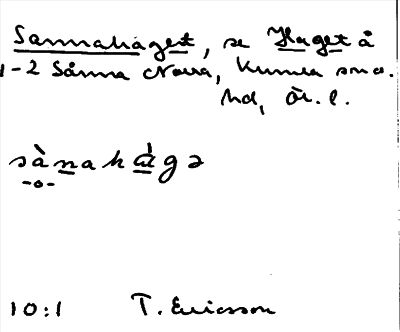 Sannahaget, se Haget å
1-2 Sånna Norra, Kumla snd.
hd, Ör. l.
sànahàgə
-o-
10:1 T. Ericsson